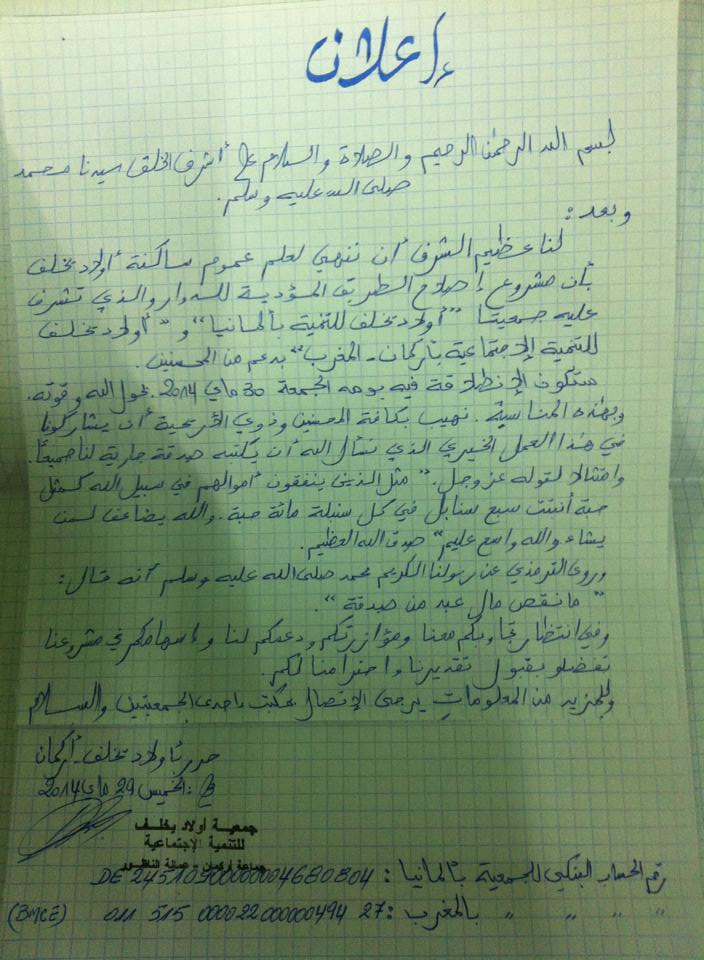 إعلان
بسم الله الرحمن الرحيم والصلاة والسلام على أشرف الخلق سيدنا محمد
صلى الله عليه وسلم.
وبعد:
لنا عظيم الشرف أن ننهي لعلم عموم ساكنة أولاد يخلف
بأن مشروع إصلاح الطريق المؤدية للدوار والذي تشرف
عليه جمعيتنا "أولاد يخلف للتنمية بألمانيا" و "أولاد يخلف
للتنمية الإجتماعية بأركمان - المغرب" بدعم من المحسنين.
ستكون الإنطلاقة فيه يومه الجمعة 30 ماي 2014. بحول الله وقوته.
وبهذه المناسبة. نهيب بكافة المحسنين وذوي الأريحية أن يشاركونا
في هذا العمل الخيري الذي نسأل الله أن يكتبه صدقة جارية لنا جميعًا.
وامتثالا لقوله عز وجل. "مثل الذين ينفقون أموالهم في سبيل الله كمثل
حبة أنبتت سبع سنابل في كل سنبلة مائة حبة. والله يضاعف لمن
يشاء والله واسع عليم" صدق الله العظيم.
وروى الترمذي عن رسولنا الكريم محمد صلى الله عليه وسلم أنه قال:
"ما نقص مال عبد من صدقة".
وفي انتظار تجاوبكم معنا ومؤازرتكم ودعمكم لنا وإسهامكم في مشروعنا
تفضلو بقبول تقديرنا واحترامنا لكم.
وللمزيد من المعلومات يرجى الإتصال بمكتب إحدى الجمعيتين والسلام
حرر بأولاد يخلف - أركمان
في: الخميس 29 ماي 2014
جمعية أولاد يخلف
للتنمية الإجتماعية
جماعة أركمان - عمالة الناظور
رقم الحساب البنكي للجمعية بألمانيا: DE 24510900000004680804
" " " " بالمغرب: 27 011 515 0000220000000494 (BMCE)